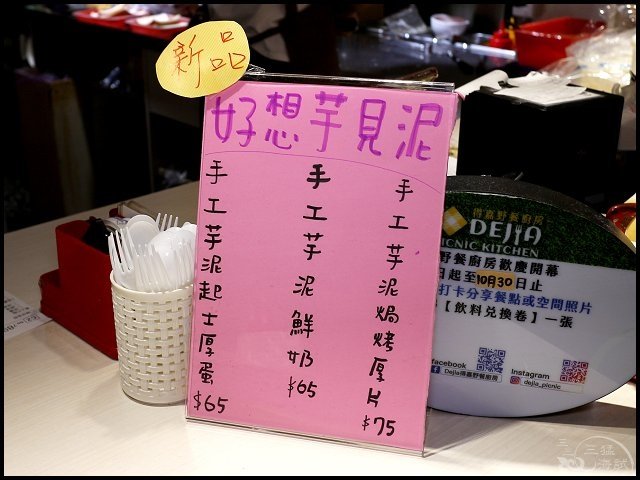 新品
好想芋見泥
手工芋泥焗烤厚片 $75
手工芋泥鮮奶 $65
手工芋泥起士厚蛋 $65
得嘉野餐廚房
DEJIA
PICNIC KITCHEN
野餐廚房歡慶開幕
日起至10月30日止
打卡分享餐點或空間照片
【飲料兌換卷】一張
facebook
Dejia得嘉野餐廚房
Instagram
dejia_picnic